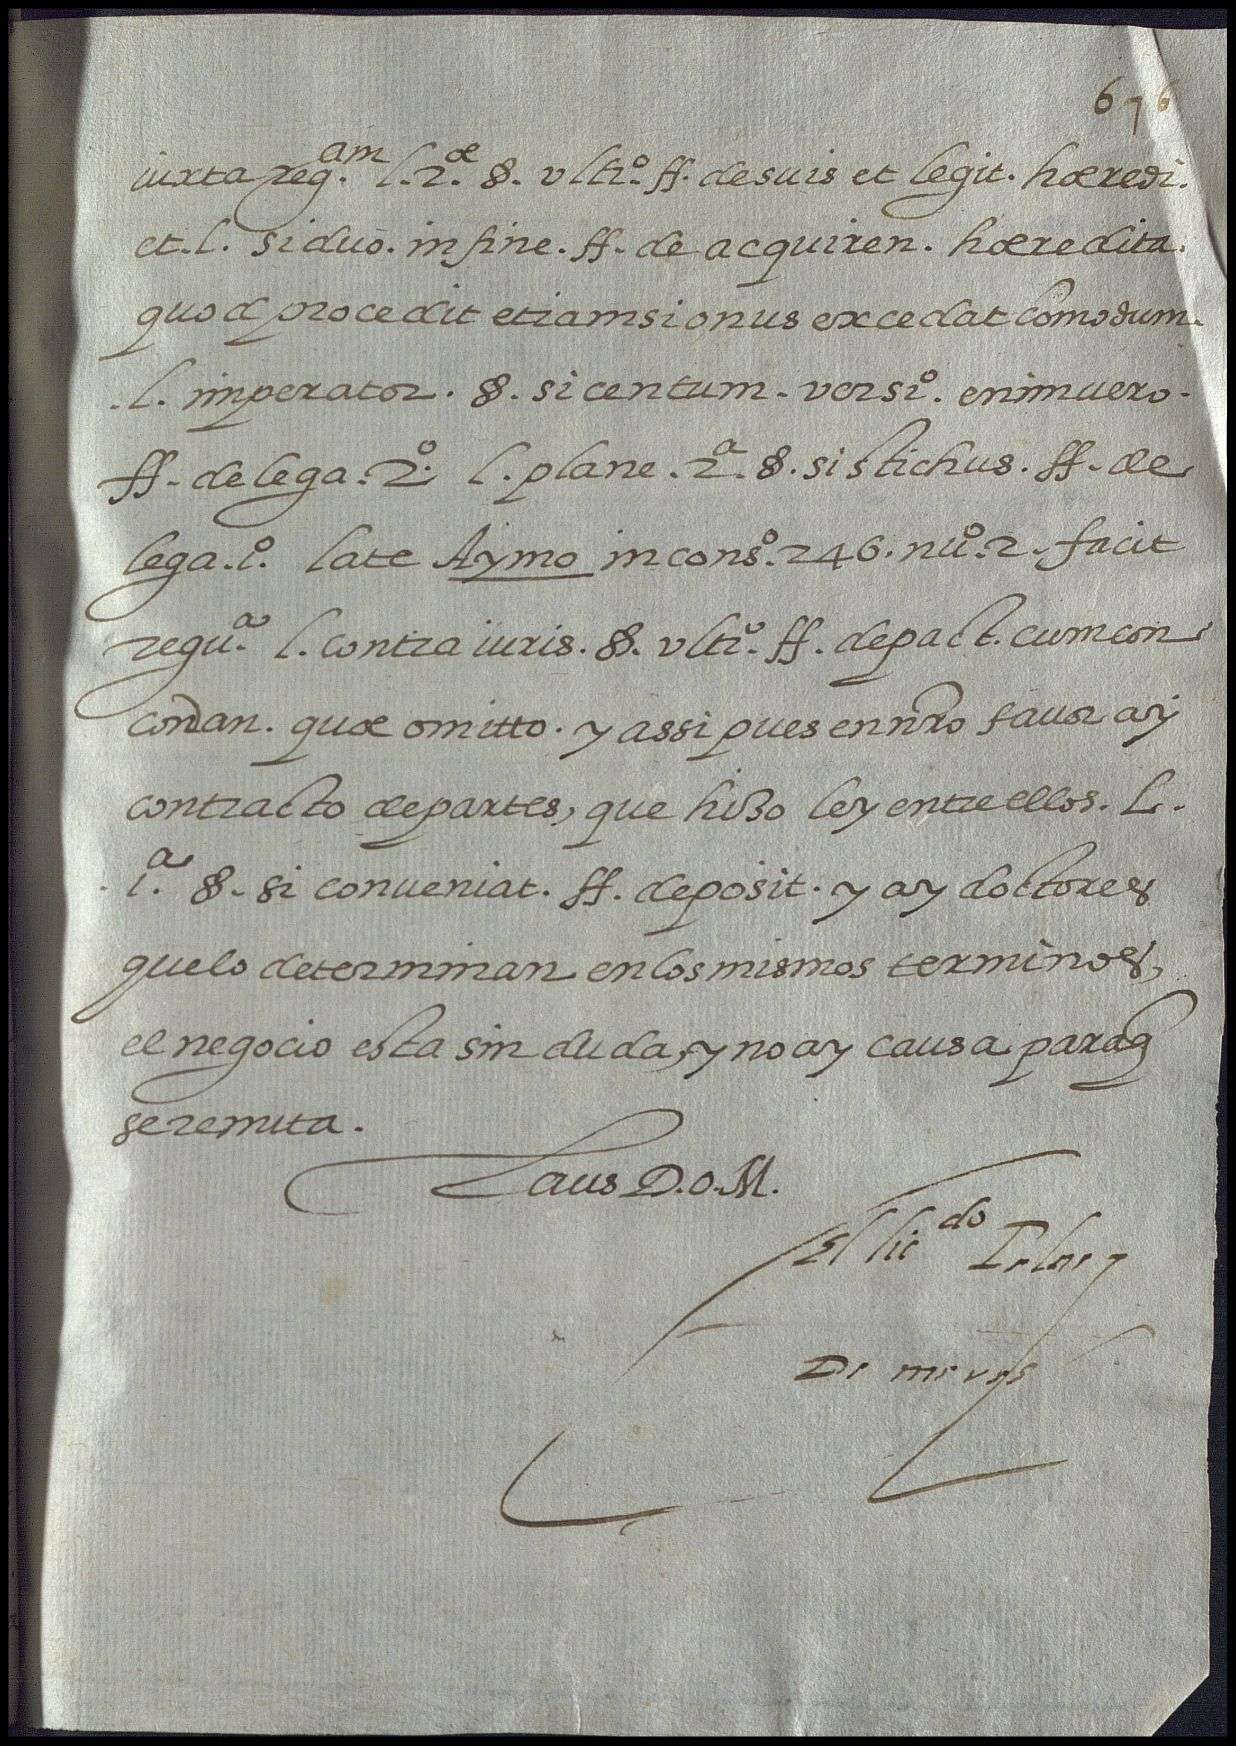 676
iuxta reg.am l. 2.æ §. vlti.º ff. de suis et legit. hæredi.
et. l. si duo. in fine. ff. de acquiren. hæredita.
quod procedit etiamsi onus excedat comodum.
.l. imperator. §. si centum. versi.º enimuero.
ff. de lega. 2.º l. plane. 2.a §. si stichus. ff. de
lega. i.º late Aymo in cons.º 246. nu.º 2. facit
regu.a l. contra iuris. §. vlti.º ff. de pact. cum con
cordan. quæ omitto. y assi pues en nro fauor ay
contracto de partes, que hizo ley entre ellos. L.
.i.a §. si conueniat. ff. deposit. y ay doctores
que lo determinan en los mismos terminos,
el negocio esta sin duda, y no ay causa para q
se remita.
Laus D.O.M.
El lic.do
De